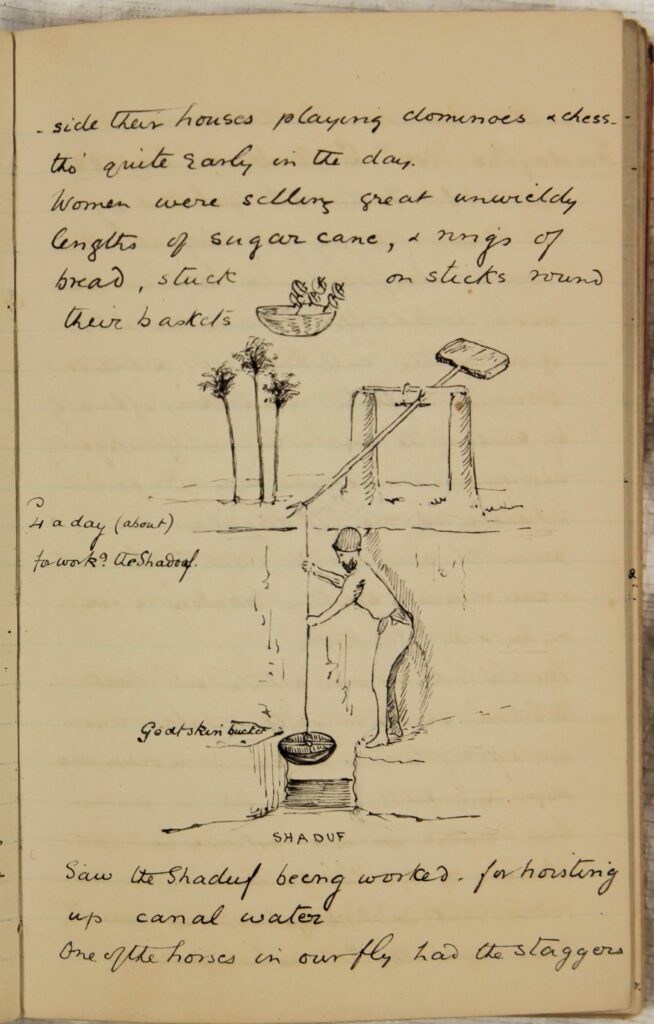 - side their houses playing dominoes & chess -
tho' quite early in the day.
Women were selling great unwieldy
lengths of sugar cane, & rings of
bread, stuck on sticks round
their baskets
4 a day (about)
for workg the Shadoof.
Goatskin bucket
SHADUF
Saw the Shaduf being worked. for hoisting
up canal water
One of the horses in our fly had the staggers